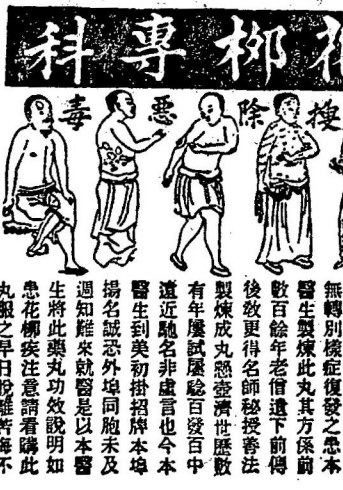 花柳專科
搜除惡毒
無轉別樣症復發之患本
醫生製煉此丸其方係前
數百餘年老僧遺下前傳
後敎更得名師秘授善法
製煉成丸懸壺濟世歷數
有年屢試屢騐百發百中
遠近馳名非虛言也今本
醫生到美初掛招牌本埠
揚名誠恐外埠同胞未及
週知難來就醫是以本醫
生將此藥丸功效說明如
患花柳疾注意請看購此
丸服之早日脫離苦海不